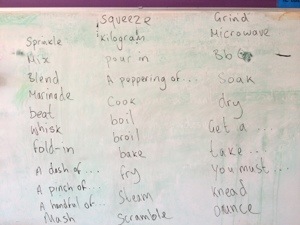 Sprinkle
Mix
Blend
Marinade
beat
Whisk
fold-in
A dash of...
A pinch of...
A handful of...
Mash
Squeeze
Kilogram
pour in
A peppering of...
Cook
boil
broil
bake
fry
Steam
Scramble
Grind
Microwave
Soak
dry
Get a ...
take ...
You must ...
knead
ounce